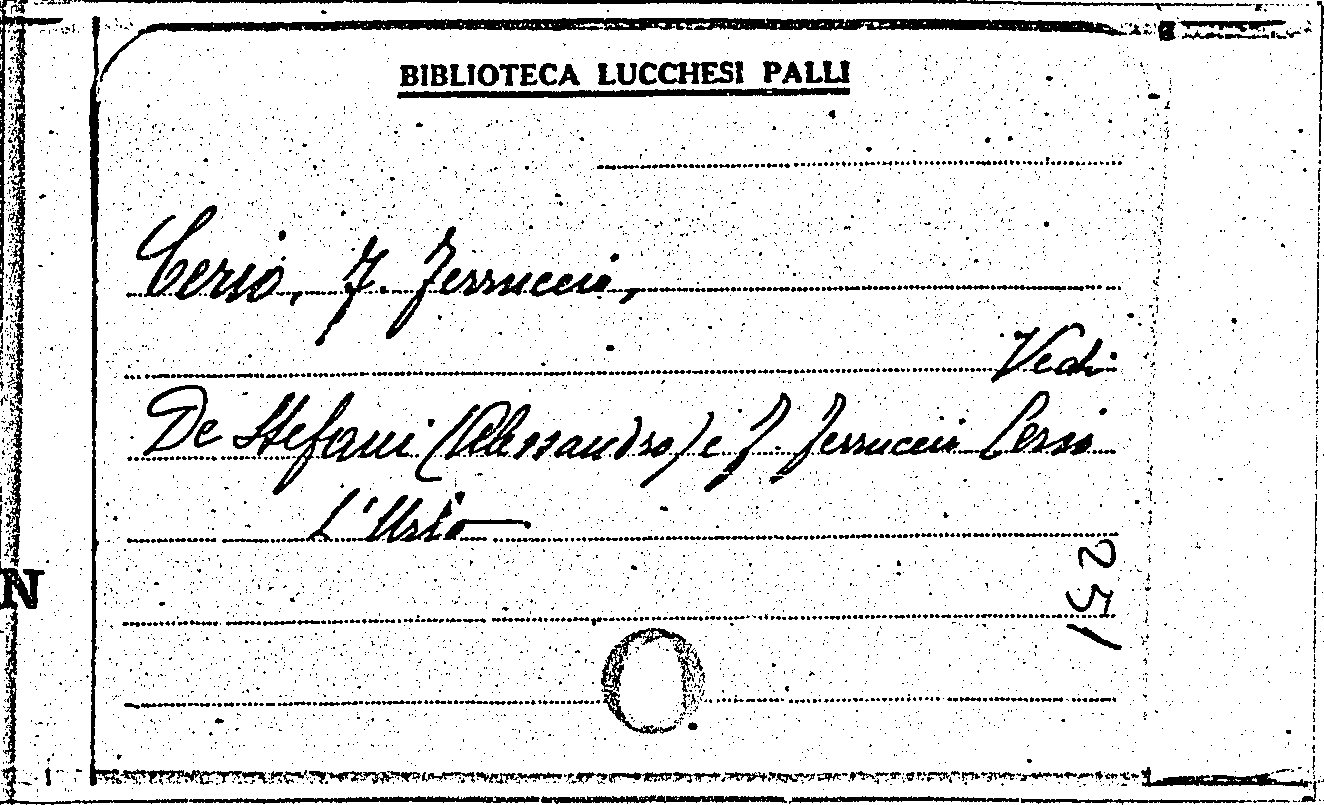 BIBLIOTECA LUCCHESI PALLI
Cerio, F. Ferruccio,
Vedi
De Stefani (Alessandro) e F. Ferruccio Cerio
L'Urlo
251
N